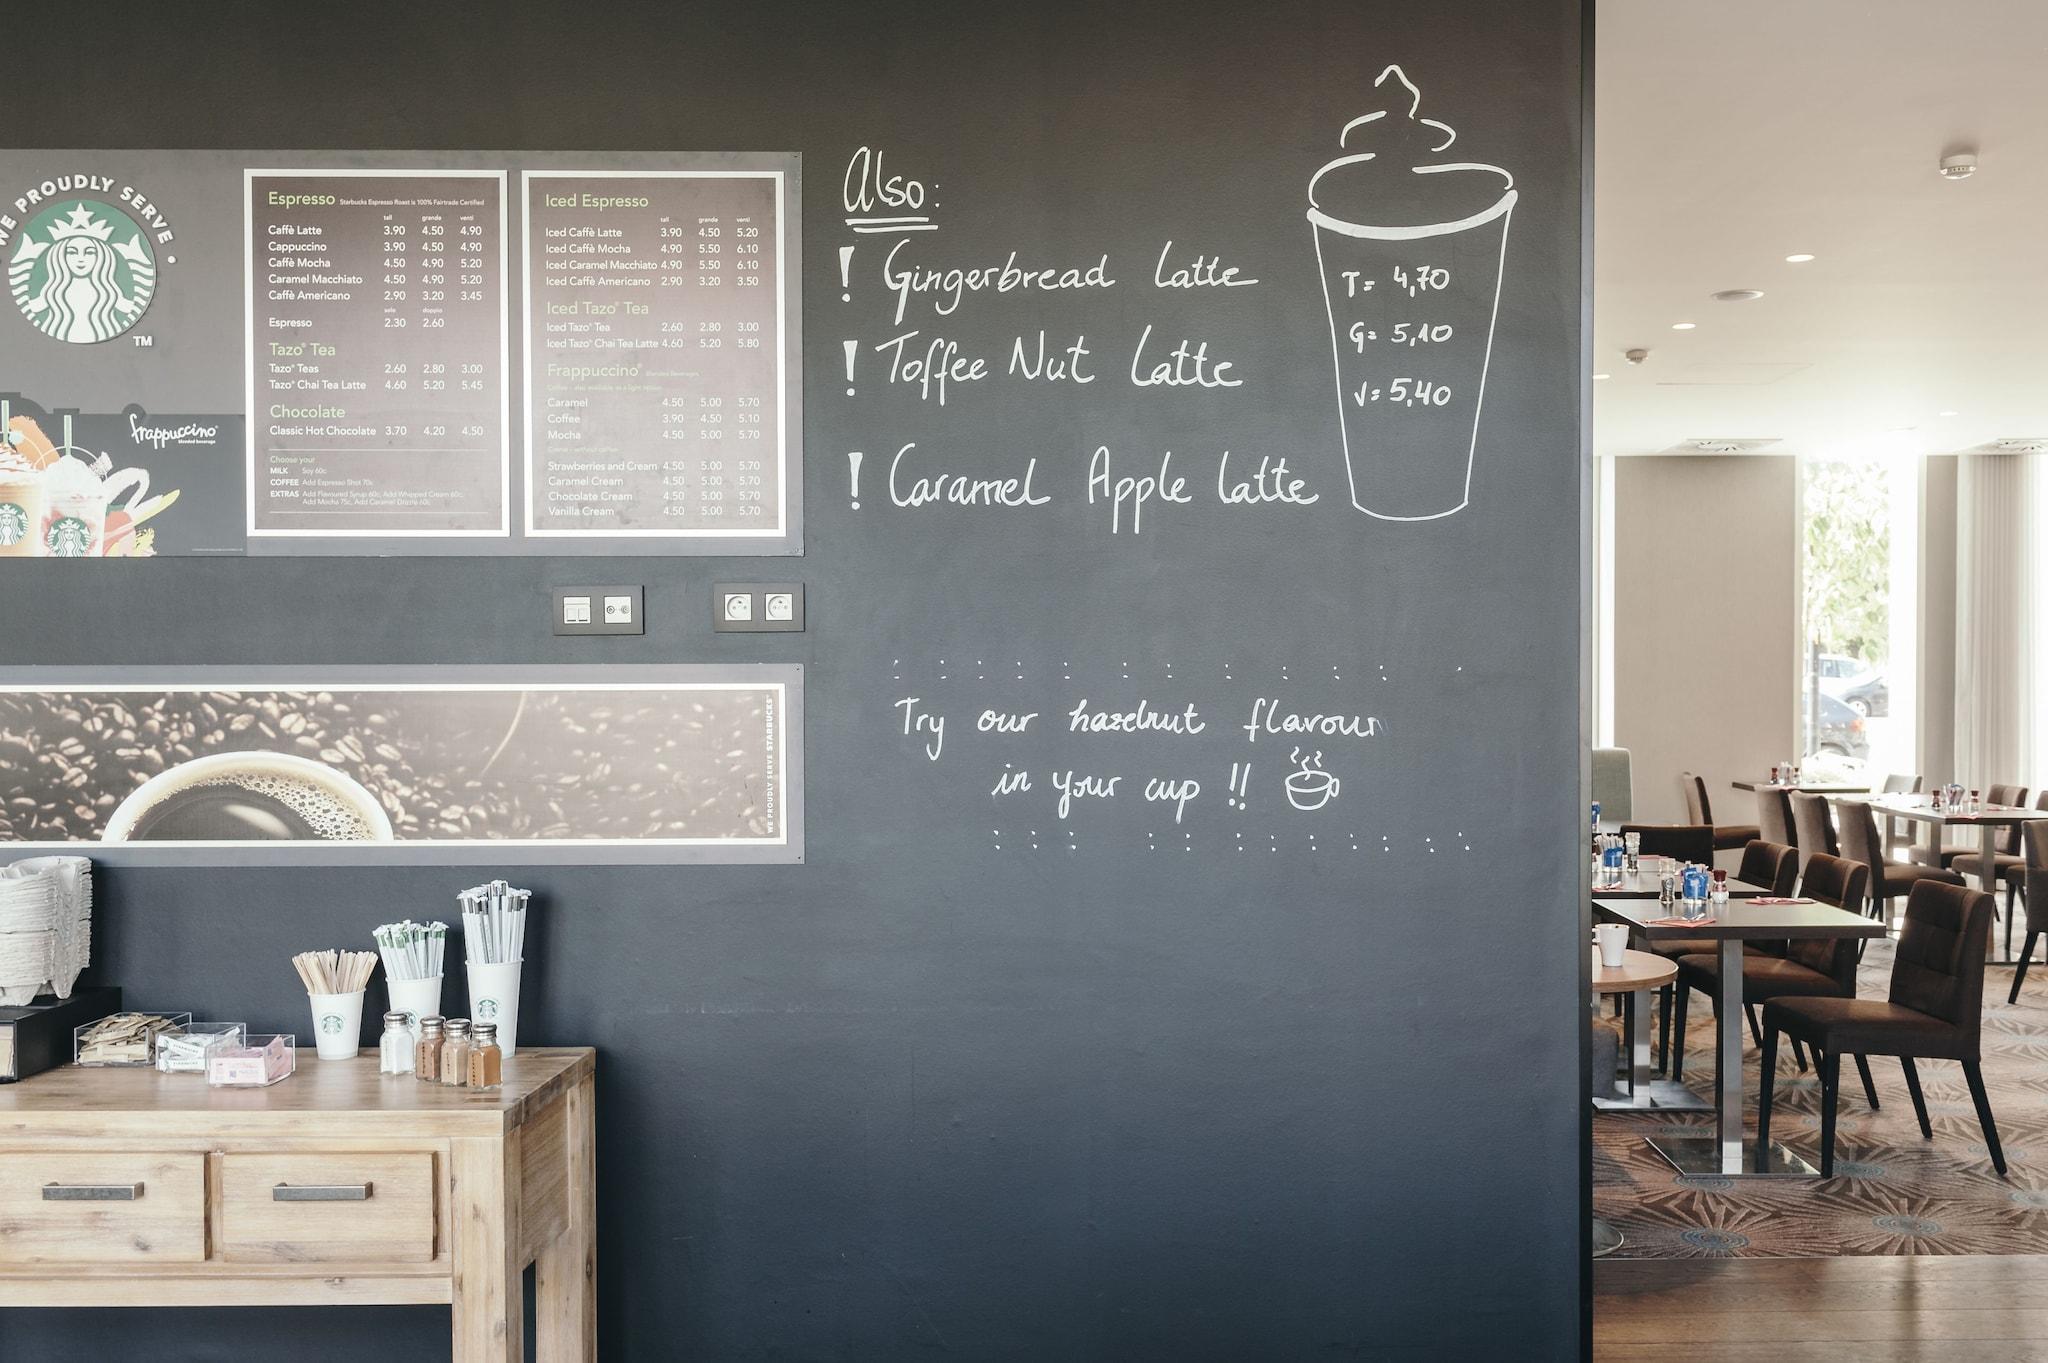 WE PROUDLY SERVE
TM
frappuccino®
blended beverage
Espresso Starbucks Espresso Roast is 100% Fairtrade Certified
tall grande venti
Caffè Latte 3.90 4.50 4.90
Cappuccino 3.90 4.50 4.90
Caffè Mocha 4.50 4.90 5.20
Caramel Macchiato 4.50 4.90 5.20
Caffè Americano 2.90 3.20 3.45
solo doppio
Espresso 2.30 2.60
Tazo® Tea
Tazo® Teas 2.60 2.80 3.00
Tazo® Chai Tea Latte 4.60 5.20 5.45
Chocolate
Classic Hot Chocolate 3.70 4.20 4.50
Choose your
MILK Soy 60c
COFFEE Add Espresso Shot 70c
EXTRAS Add Flavoured Syrup 60c, Add Whipped Cream 60c,
Add Mocha 75c, Add Caramel Drizzle 60c
Iced Espresso
tall grande venti
Iced Caffè Latte 3.90 4.50 5.20
Iced Caffè Mocha 4.90 5.50 6.10
Iced Caramel Macchiato 4.90 5.50 6.10
Iced Caffè Americano 2.90 3.20 3.50
Iced Tazo® Tea
Iced Tazo® Tea 2.60 2.80 3.00
Iced Tazo® Chai Tea Latte 4.60 5.20 5.80
Frappuccino® Blended Beverages
Coffee - also available as a light option
Caramel 4.50 5.00 5.70
Coffee 3.90 4.50 5.10
Mocha 4.50 5.00 5.70
Creme - without coffee
Strawberries and Cream 4.50 5.00 5.70
Caramel Cream 4.50 5.00 5.70
Chocolate Cream 4.50 5.00 5.70
Vanilla Cream 4.50 5.00 5.70
Also:
! Gingerbread Latte
! Toffee Nut Latte
! Caramel Apple Latte
T= 4,70
G= 5,10
V= 5,40
Try our hazelnut flavour
in your cup !!
WE PROUDLY SERVE STARBUCKS®